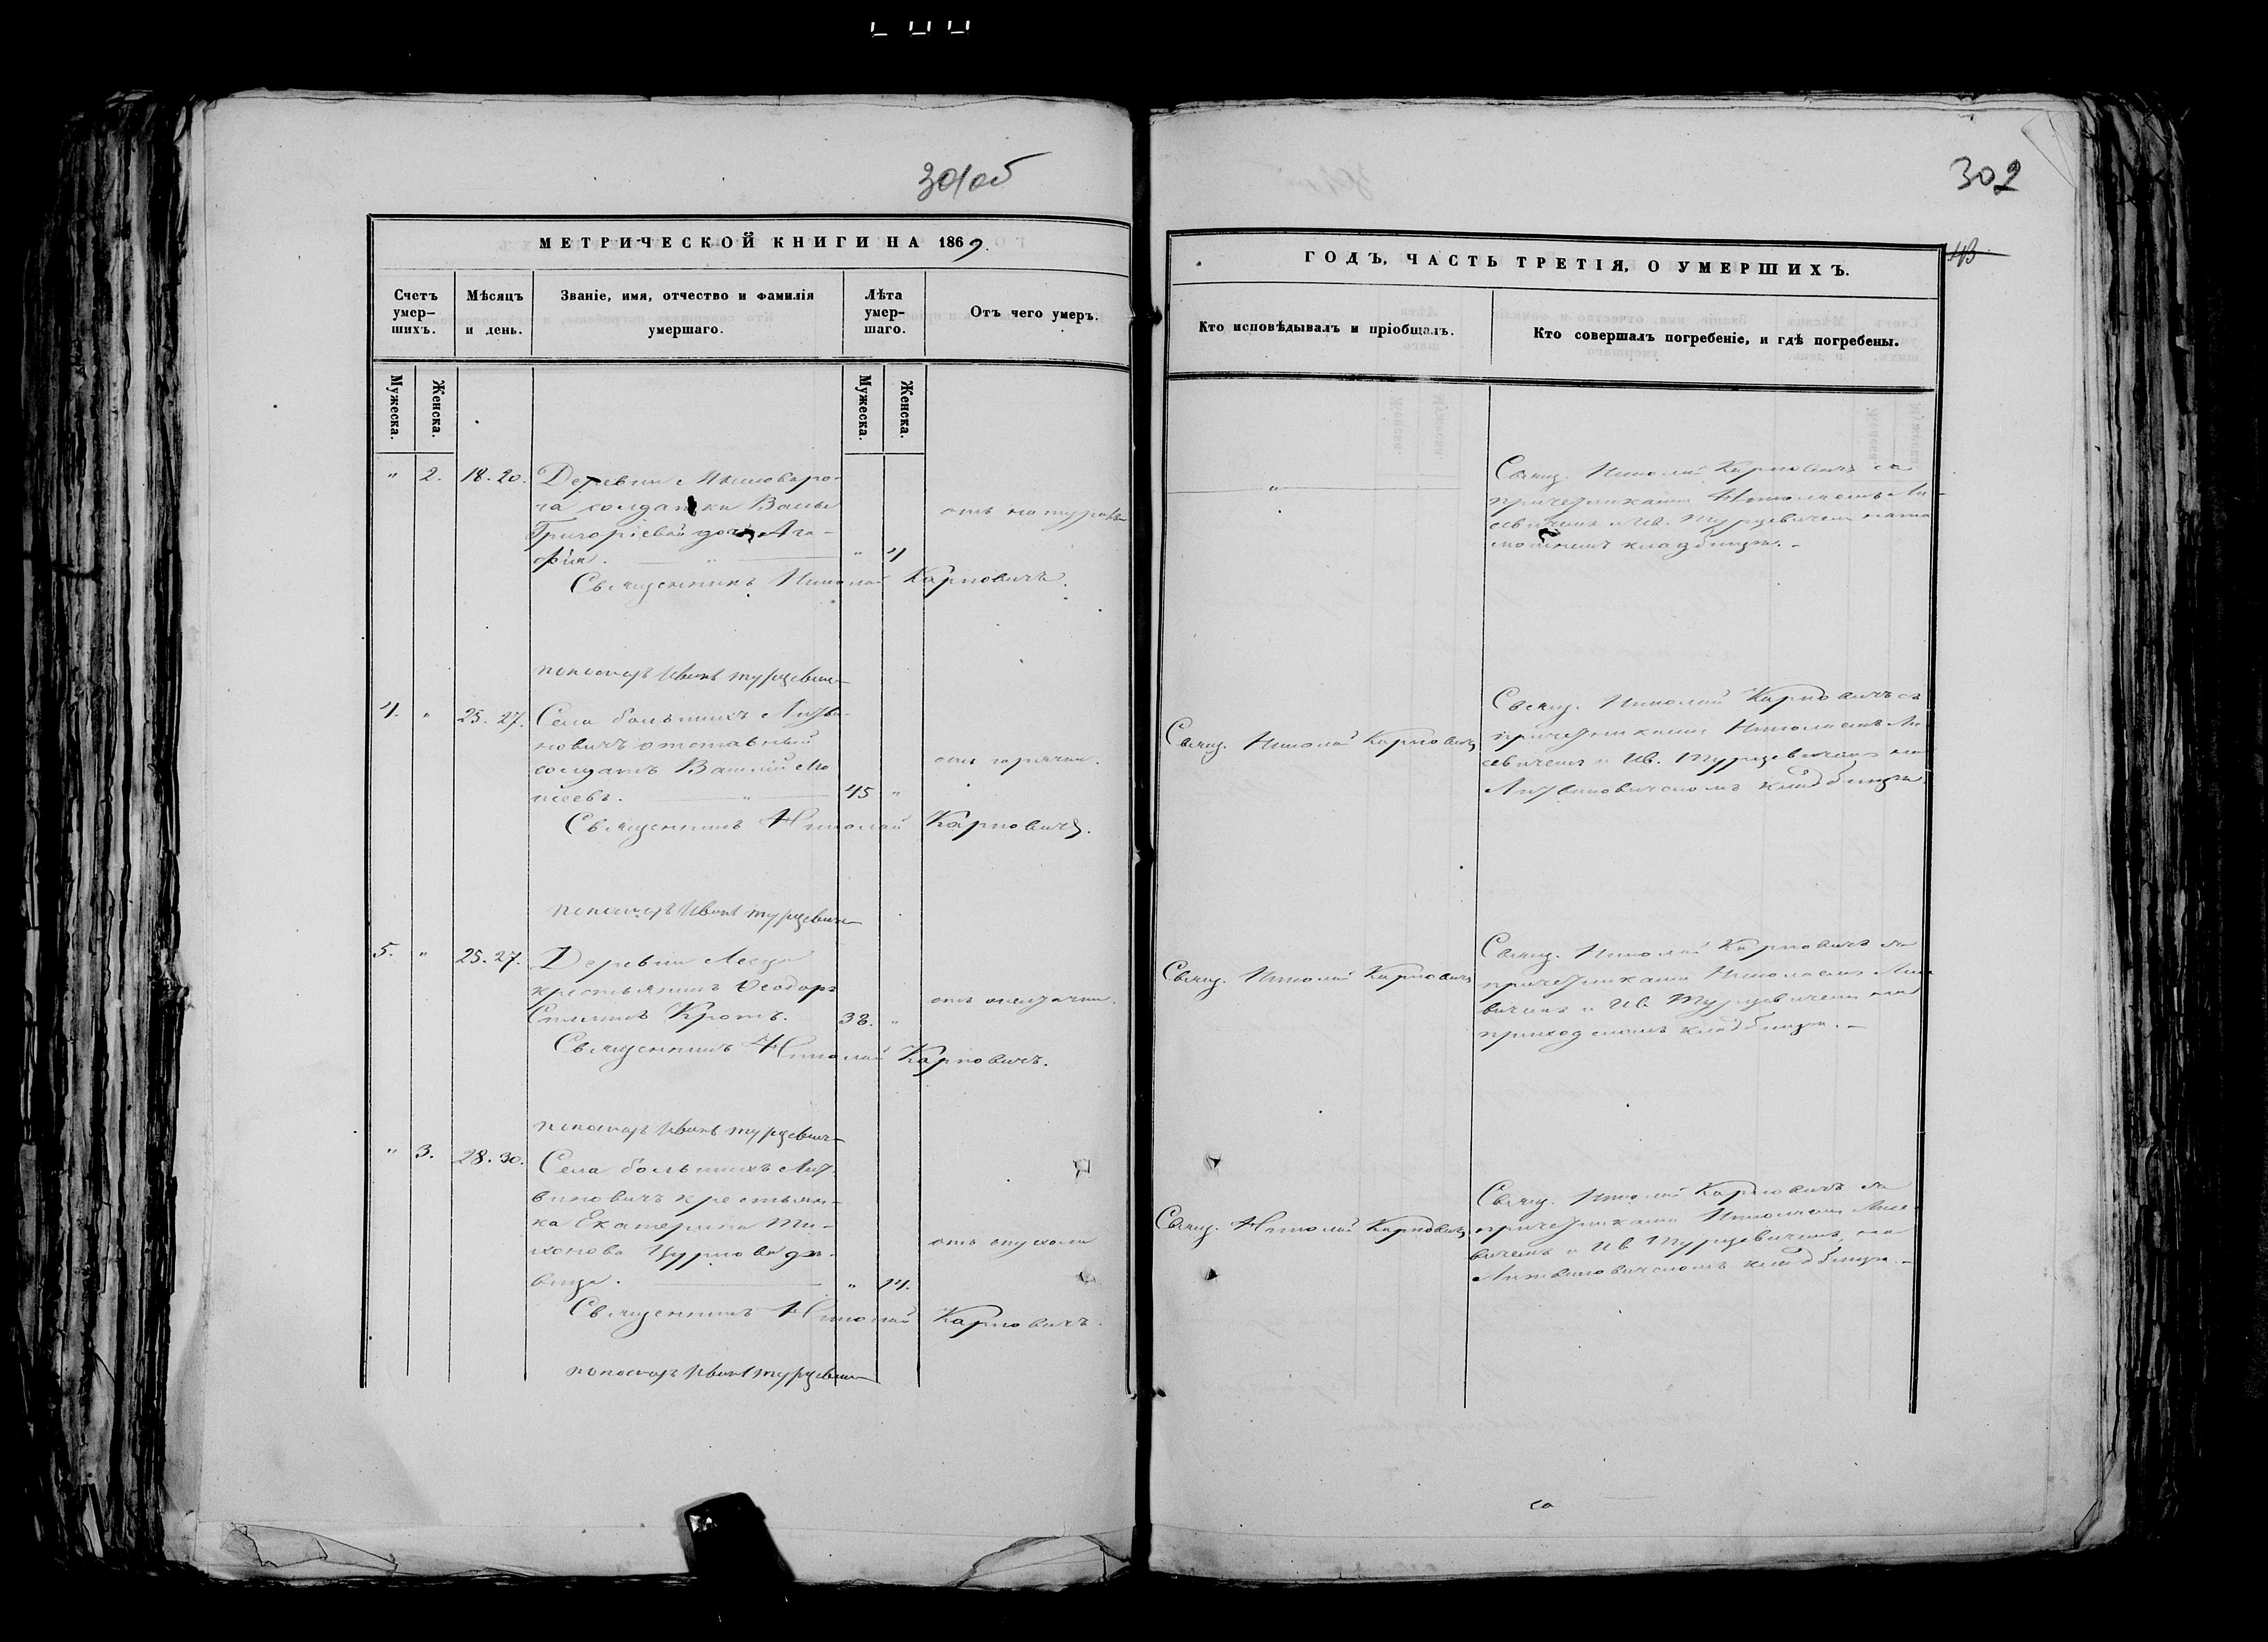 301об
302
МЕТРИЧЕСКОЙ КНИГИ НА 1869.
Счетъ умер-шихъ.
Мѣсяцъ и день.
Званіе, имя, отчество и фамилія умершаго.
Лѣта умер-шаго.
Отъ чего умеръ.
Мужеска.
Женска.
Мужеска.
Женска.
" 2. 18. 20. Деревни
солдатки
Григоріевой дочь Ага-
фія. " 4
Священникъ Николай Карповичъ.
пономарь Иванъ Турцевичъ
4. " 25. 27. Села большихъ Литви-
новичъ отставный
солдатъ отъ горячки.
45 "
Священникъ Николай Карповичъ.
пономарь Иванъ Турцевичъ
5. " 25. 27. Деревни
крестьянинъ Ѳеодоръ
Кротъ. 38. "
Священникъ Николай Карповичъ.
пономарь Иванъ Турцевичъ
" 3. 28. 30. Села большихъ Лит-
виновичъ крестьян-
ка Екатерина Ти-
хонова дѣ- отъ опухоли
вица. " 14.
Священникъ Николай Карповичъ.
пономарь Иванъ Турцевичъ
ГОДЪ, ЧАСТЬ ТРЕТІЯ, О УМЕРШИХЪ.
43
Кто исповѣдывалъ и пріобщалъ.
Кто совершалъ погребеніе, и гдѣ погребены.
Свящ. Николай Карповичъ съ
причетниками Николаемъ
и Ив. Турцевичемъ
кладбищѣ.
Свящ. Николай Карповичъ
Свящ. Николай Карповичъ съ
причетниками Николаемъ
и Ив. Турцевичемъ на
Литвиновичскомъ кладбищѣ
Свящ. Николай Карповичъ
Свящ. Николай Карповичъ съ
причетниками Николаемъ
и Ив. Турцевичемъ на
приходскомъ кладбищѣ. -
Свящ. Николай Карповичъ
Свящ. Николай Карповичъ съ
причетниками Николаемъ
и Ив. Турцевичемъ на
Литвиновичскомъ кладбищѣ. -